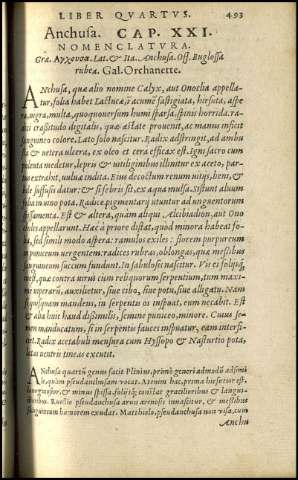 LIBER QVARTVS. 493
Anchusa. CAP. XXI.
NOMENCLATVRA.
Græ. Αγχουσα. Lat. & Ita.. Anchusa. Off. Buglossa
rubea. Gal. Orchanette.
ANchusa, quæ alio nomine Calyx, aut Onoclia appella-
tur, folia habet Lactucæ, acumine fastigiata, hirsuta, aspe-
ra, nigra, multa, quoquouersum humi sparsa, spinis horrida. ra-
dix crassitudo digitalu, quæ æstate prouenit, ac manus inficit
sanguineo colore. Lato solo nascitur. Radix adstringit, ad ambu
sta & vetera ulcera, ex oleo et cera efficax est. Igni sacro cum
polenta medetur, lepris & vitiliginibus illinitur ex aceto, par-
tus extrahit, vuluæ indita. Eius decoctum renum vitijs, heni, &
bile suffusis datur: & si febris sit, ex aqua mulsa. Sistunt aluum
folia in vino pota. Radice pigmentarij utuntur ad unguentorum
spissamenta. Est & altera, quam aliqui Alcibiadion, aut Ono
chelis appellarunt. Hæc à priore distat, quod minora habeat fo-
lia, sed simili modo aspera: ramulos exiles: florem purpureum
in puniceum vergentem. radices rubras, oblongas, quæ messibus
sanguineum succum fundunt. In sabulosis nascitur. Vis ei folijsq́;
inest, quæ contra virus cùm reliquorum serpentium, tum maxi-
mè viperarū, auxilietur, siue cibo, siue potu, siue alligatu. Nam
si quis quam mandens, in serpentis os inspuat, eum necabit. Est
& alia huic haud dissimilis, semine puniceo, minore. Cuius se-
men manducatum, si in serpentis fauces inspuatur, eam interfi-
cit. Radix acetabuli mensura cum Hyssopo & Nasturtio pota,
latos ventris tineas excutit.
ANchusæ quartū genus facit Plinius, primò generi admodū adsimile
quàm pseudanchusam vocat.
longiusq́;, & minus spissa folijs
Ruellio pseudanchusa aruis arenosis innascitur, & messibus
sanguineum humorem exudat. Matthiolo, pseudanchusa non visa, cum
Anchu